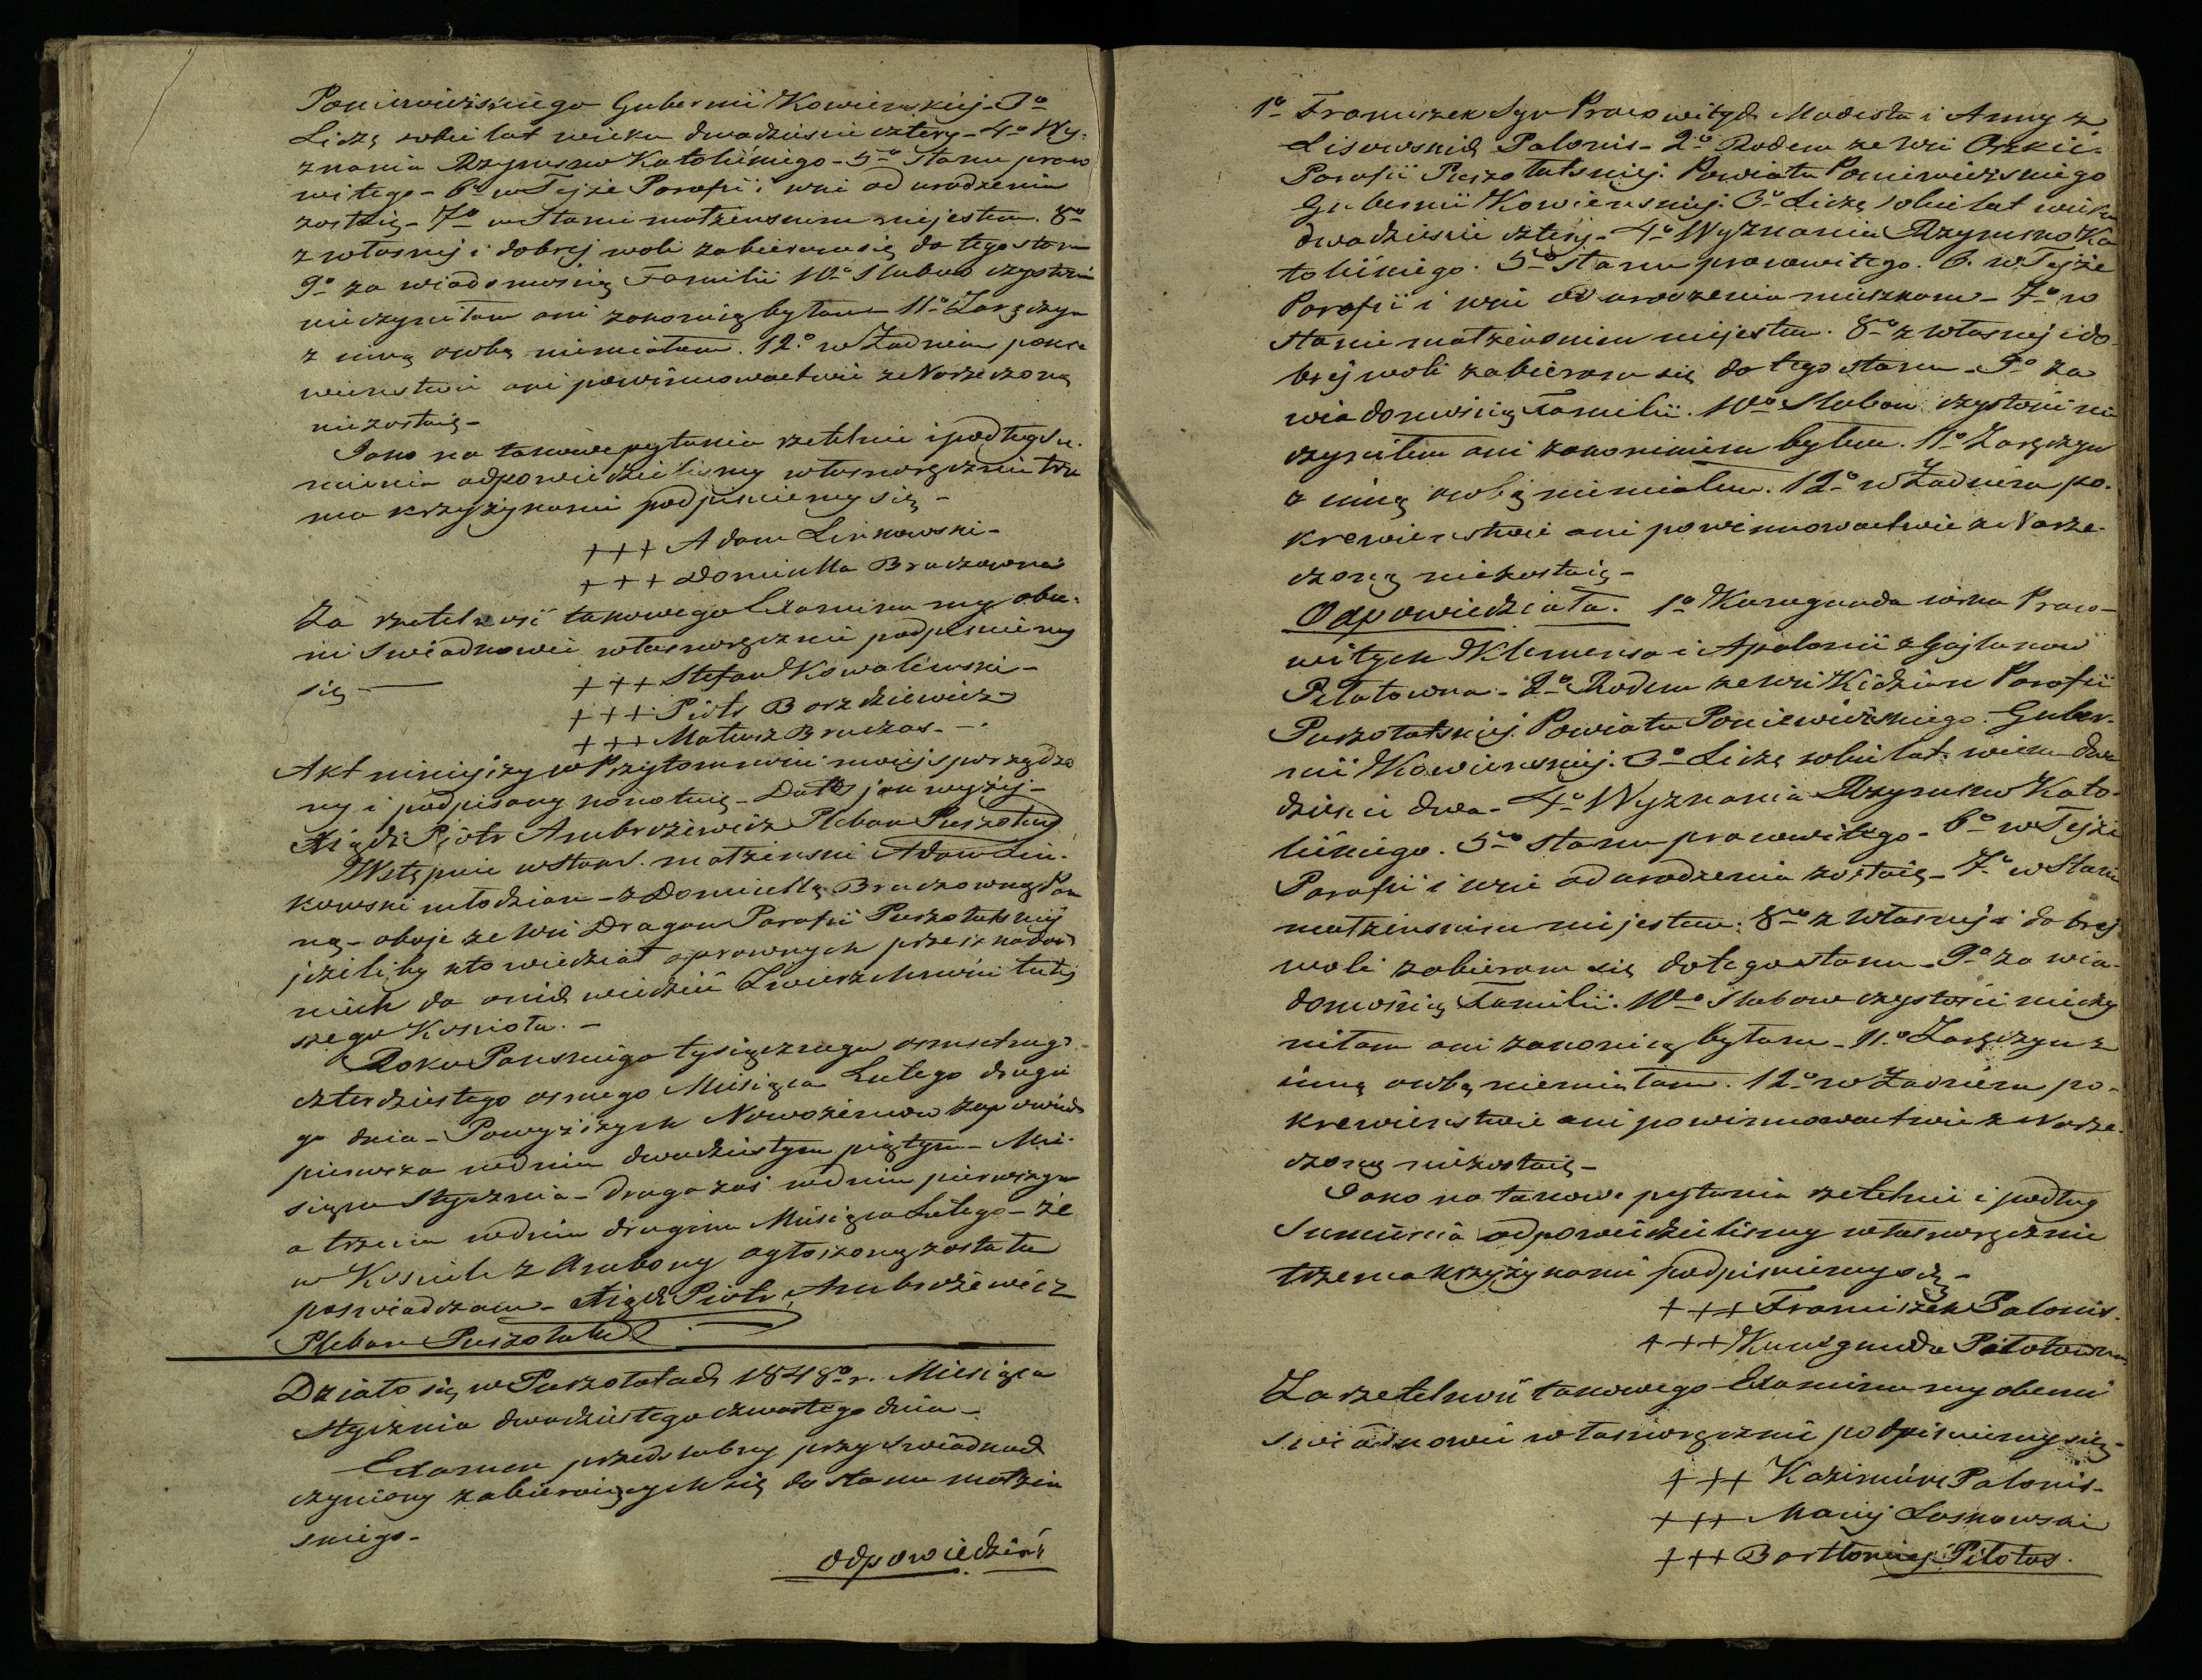 Poniewiezskiego Gubernii Kowienskiej. 3o
Liczę sobie lat wieku dwadziescie cztery - 4o Wy-
znania Rzymsko Katolickiego - 5o Stanu prawo
witego - 6o w Tejże Parafii i wsi od urodzenia
zostaię - 7o w Stanie matzenskim niejestem. 8o
z własnej i dobrej woli zabieram się do tego stanu
9o za wiadomością Familii 10o Slubow czystosci
nieczyniłam ani zakonnicą byłam 11o Zaręczyn
z inną osobą niemiałam. 12o w Żadnem pokre
wienstwie ani powinnowactwie z Narzeczoną
niezostaię -
Jako na takowe pytania rzetelnie i podług Su-
mienia odpowiedzielismy własnoręcznie trze
ma krzyżykami podpisuiemy się -
+++ Adam Linkowski -
+++ Domicella Bruczowna
Za rzetelnosć takowego Examinu my obe-
ni Swiadkowie własnoręcznie podpisuiemy
się - +++ Stefan Kowalewski -
+++ Piotr Borzdziewicz
+++ Mateusz Bruczas -
Akt ninieyszy w Przytomnosci moiej sporządzo
ny i podpisany konotuię - Datt jak wyżej -
Xiądz Piotr Ambrożewicz Pleban Puszołatski
Wstępuie w Stan matzenski Adam Lin-
kowski młodzian - z Domicellą Bruczowną Pan
ną - oboje ze Wsi Dragan Parafii Puszołatskiej
jeżeliby kto wiedział o prawnych przeszkodach
niech da onich wiedzieć Zwierzchności tutej
szego Kosciola. -
Roku Panskiego tysiącznego osmsetnego
czterdziestego osmego Miesiąca Lutego drugie
go dnia - Powyższych Nowożencow zapowiedz
pierwsza w dniu dwudziestym piątym - Mie-
siąca Stycznia - Druga zaś w dniu pierwszym
a trzecia w dniu drugim Miesiąca Lutego - że
w Kosciele z Ambony ogłoszoną została
poswiadczam - Xiądz Piotr Ambrożewicz
Pleban Puszołatski
Działo się w Puszołatach 1848o r. Miesiąca
Stycznia dwudziestego czwartego dnia -
Examen przedslubny przy Swiadkach
czyniony zabieraiących się do Stanu matzen
skiego -
Odpowiedział
1o Franciszek Syn Prawowitych Modesta i Anny z
Lisowskich Palonis - 2o Rodem ze Wsi
Parafii Puszołatskiej. Powiatu Poniewiezskiego
Gubernii Kowienskiej. 3o Liczę sobie lat wieku
dwadziescie cztery - 4o Wyznania Rzymsko Ka
tolickiego. 5o Stanu prawowitego. 6. w Tejże
Parafii i wsi od urodzenia mieszkam - 7o w
Stanie matzenskim niejestem. 8o z własnej i do-
brej woli zabieram się do tego stanu - 9o za
wiadomością Familii. 10o Slubow czystosci nie
czyniłem ani zakonnikiem byłem. 11o Zaręczyn
z inną osobą niemiałem. 12o w Żadnem po-
krewienstwie ani powinnowactwie z Narze-
czoną niezostaię -
Odpowiedziała. 1o Kunegunda corka Prawo-
witych Klemensa i Apolonii z Gaylanow
Pilatowna - 2o Rodem ze Wsi Kidzian Parafii
Puszołatskiej. Powiatu Poniewiezskiego. Guber-
nii Kowienskiej. 3o Liczę sobie lat wieku dwa
dziescie dwa - 4o Wyznania Rzymsko Kato-
lickiego. 5o Stanu prawowitego - 6o w Tejże
Parafii i wsi od urodzenia zostaię - 7o w Stanie
matzenskim niejestem. 8o z własnej i dobrej
woli zabieram się do tego stanu - 9o za wia-
domością Familii. 10o Slubow czystosci nieczy
niłam ani zakonnicą byłam - 11o Zaręczyn z
inną osobą niemiałam. 12o w Żadnem po-
krewienstwie ani powinnowactwie z Narze-
czoną niezostaię -
Jako na takowe pytania rzetelnie i podług
Sumienia odpowiedzielismy własnoręcznie
trzema krzyżykami podpisuiemy się -
+++ Franciszek Palonis.
+++ Kunegunda Pilatowna
Za rzetelność takowego Examinu my obecni
Swiadkowie własnoręcznie podpisuiemy się -
+++ Kazimierz Palonis -
+++ Maciej Laskowski
+++ Bartłomiej Pilatos.